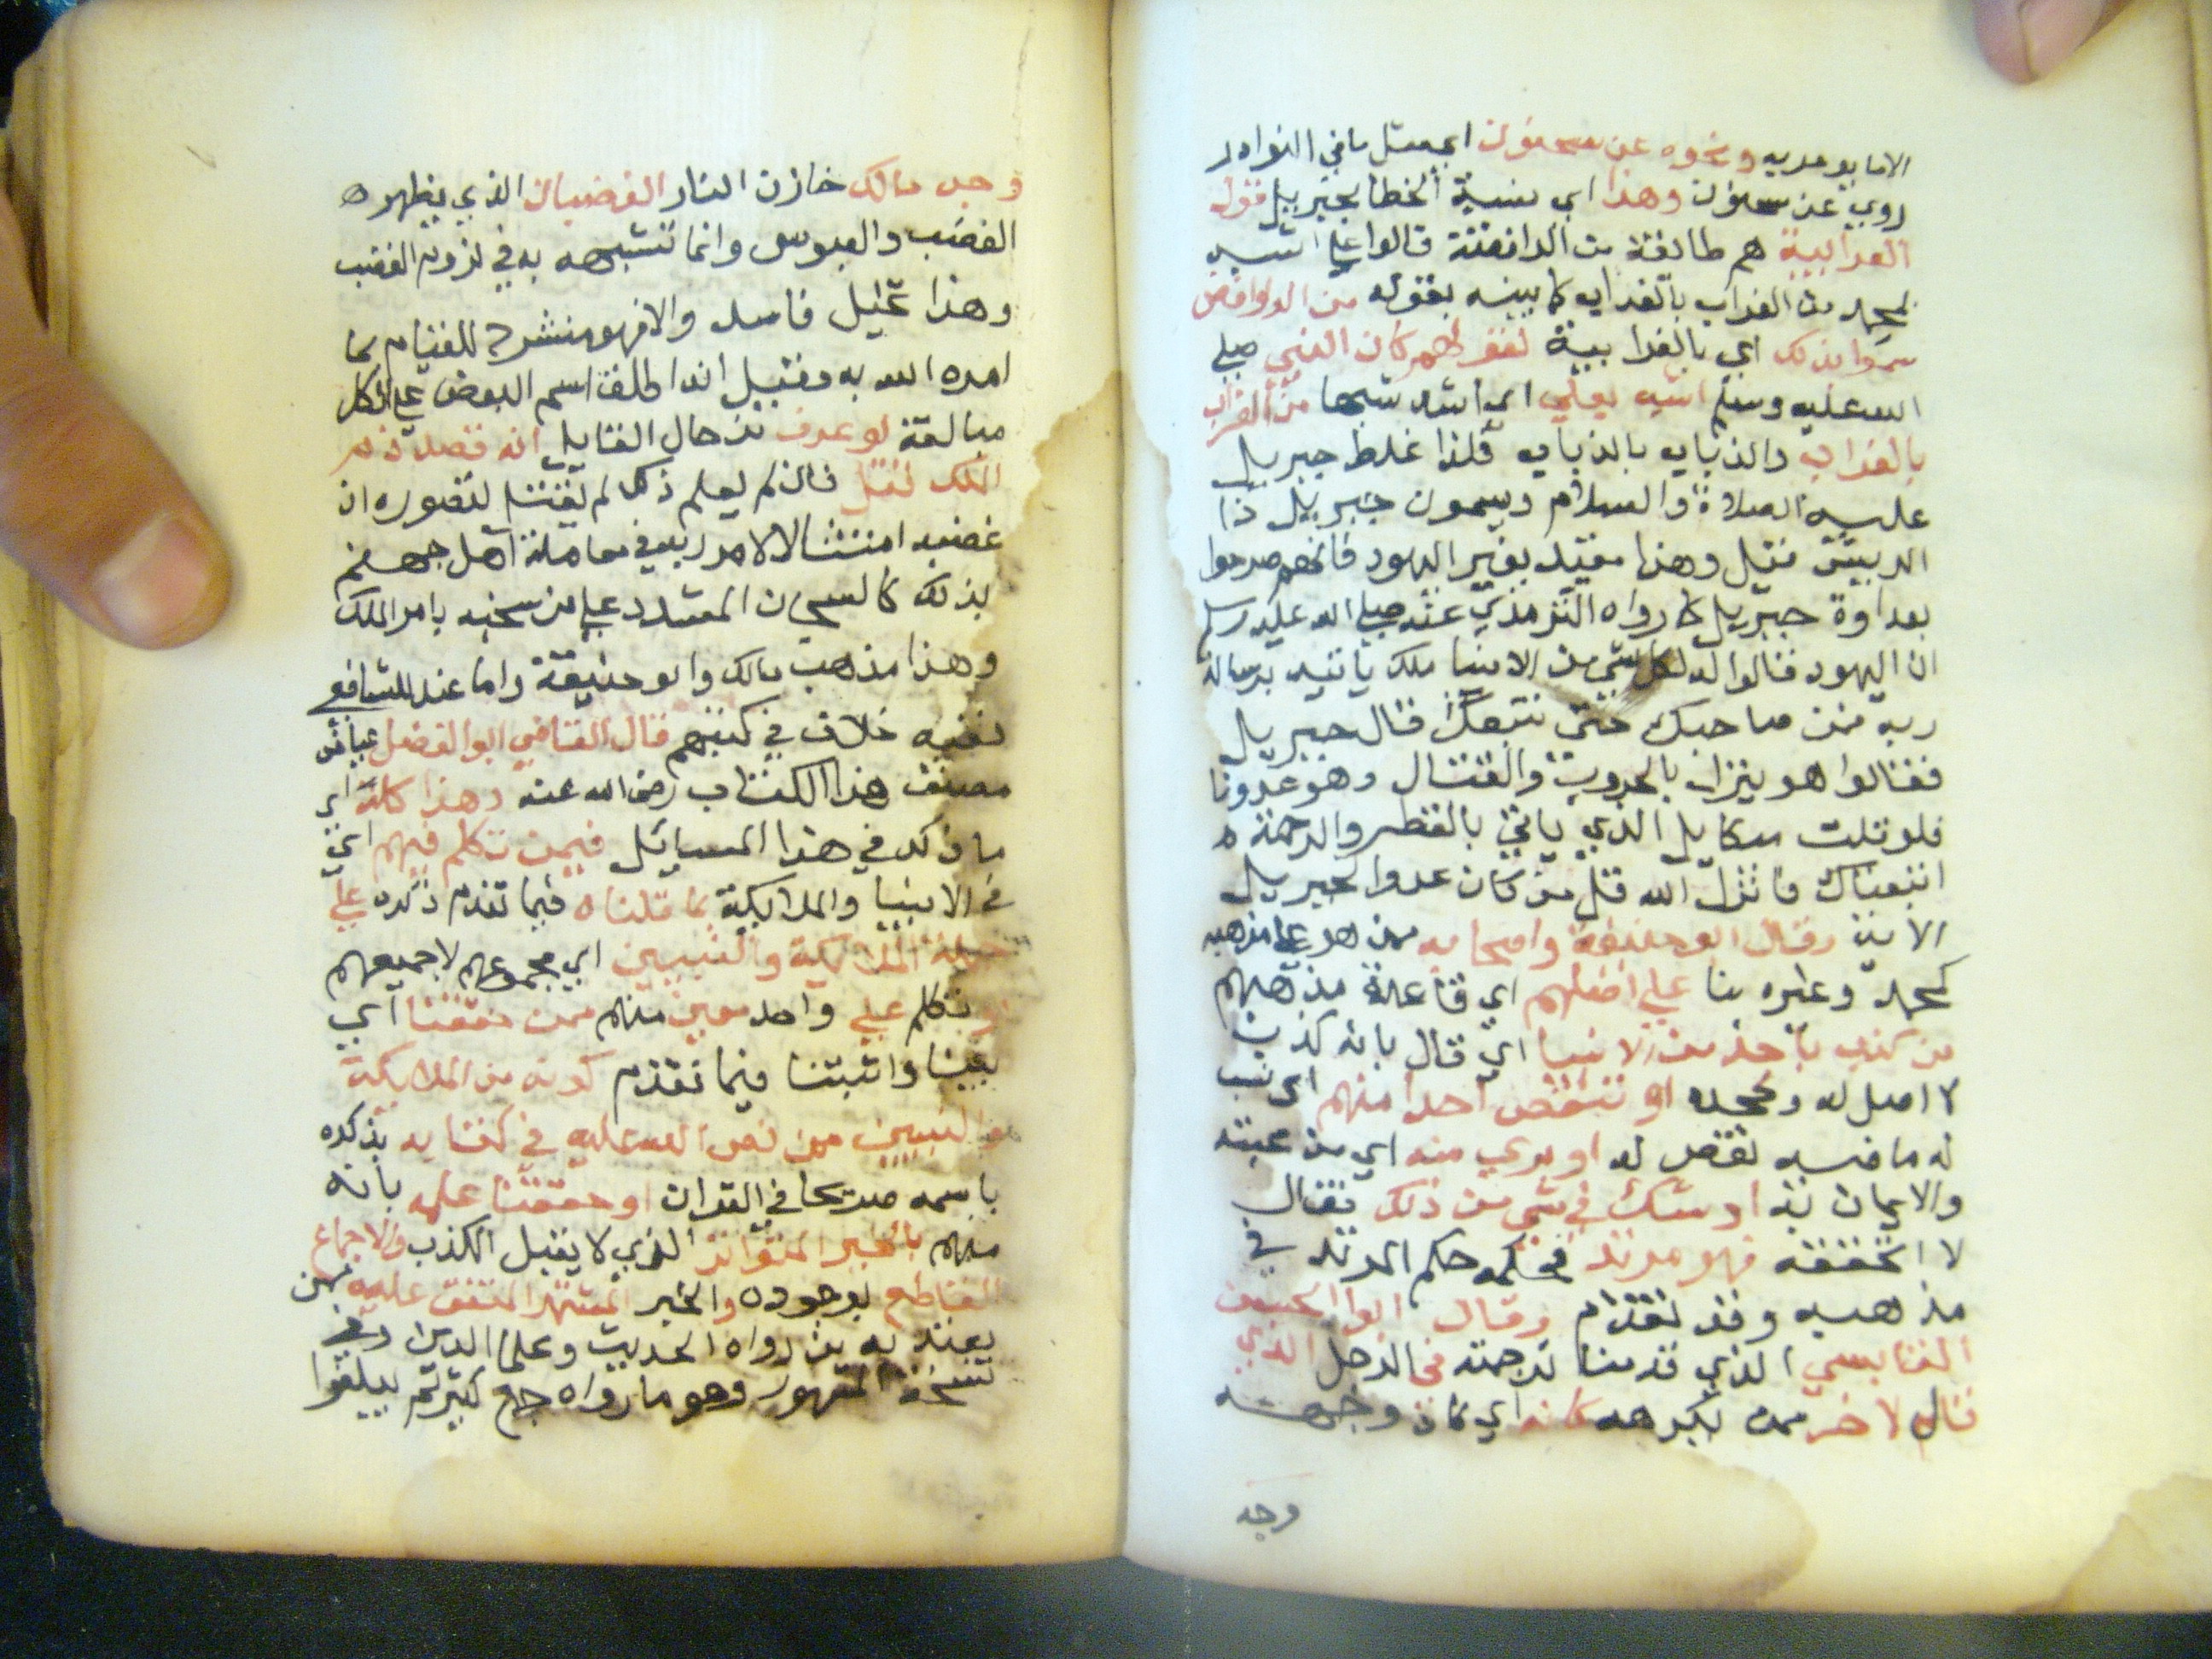 الا ما يومر به ونحوه عن سحنون اي مثل ما في النوادر
روي عن سحنون وهذا اي نسبة الخطا لجبريل قول
الغرابية هم طائفة من الرافضة قالوا علي اشبه
لمحمد من الغراب بالغراب كما بينه بقوله من الروافض
سموا بذلك اي بالغرابية لقولهم كان النبي صلي
الله عليه وسلم اشبه بعلي اي اشد شبها من الغراب
بالغراب والذباب بالذباب فلذا غلط جبريل
عليه الصلاة والسلام ويسمون جبريل ذا
الريش قيل وهذا مقيد بغير اليهود فانهم صرحوا
بعداوة جبريل كما رواه الترمذي عنه صلي الله عليه وسلم
ان اليهود قالوا له لكل نبي من الانبيا ملك ياتيه برسالة
ربه فمن صاحبك حتي نتبعك قال جبريل
فقالوا هو ينزل بالحروب والقتال وهو عدونا
فلو قلت ميكايل الذي ياتي بالقطر والرحمة
اتبعناك فانزل الله قل من كان عدوا لجبريل
الاية وقال ابو حنيفة واصحابه ممن هو علي مذهبه
كمحمد وغيره بنا علي اصلهم اي قاعدة مذهبهم
من كذب باحد من الانبيا اي قال بانه كذب
لا اصل له وجحده او تنقص احدا منهم اي نسب
له ما فيه نقص له او بري منه اي من محبته
والايمان به او شك في شي من ذلك فقال
لا اتحققه فهو مرتد فحكمه حكم المرتد في
مذهبه وقد تقدم وقال ابو الحسن
القابسي الذي قدمنا ترجمته في الرجل الذي
قال لاخر ممن يكرهه كانه اي كان وجهه
وجه
وجه مالك خازن النار الغضبان الذي يظهره
الغضب والعبوس وانما تشبهه به في لزوم الغضب
وهذا تخيل فاسد والا فهو منشرح للقيام بما
امره الله به وقيل انه اطلق اسم البعض علي الكل
مبالغة لو عرف من حال القايل انه قصد ذم
الملك لقتل فان لم يعلم ذلك لم يقتل لتصوره ان
غضبه امتثالا لامر ربه في معاملة اهل جهنم
بذلك كالسجان المشدد علي من سجنه بامر الملك
وهذا مذهب مالك وابو حنيفة واما عند الشافعي
ففيه خلاف في كتبهم قال القاضي ابو الفضل عياض
مصنف هذا الكتاب رضي الله عنه وهذا كله اي
ما ذكر في هذا المسايل فيمن تكلم فيهم اي
في الانبيا والملايكة بما قلناه فيما تقدم ذكره علي
جملة الملايكة والنبيين اي مجموعهم لا جميعهم
او تكلم علي واحد معين منهم ممن حققنا اي
بينا واثبتنا فيما تقدم كونه من الملايكة
والنبيين ممن نص الله عليه في كتابه بذكره
باسمه صريحا في القران او حققنا علمه بانه
منهم بالخبر المتواتر الذي لا يقبل الكذب والاجماع
القاطع بوجوده والخبر المشتهر المتفق عليه ممن
يعتد به من رواه الحديث وعلما الدين وفي
نسخة المشهور وهو ما رواه جمع كثير لم يبلغوا